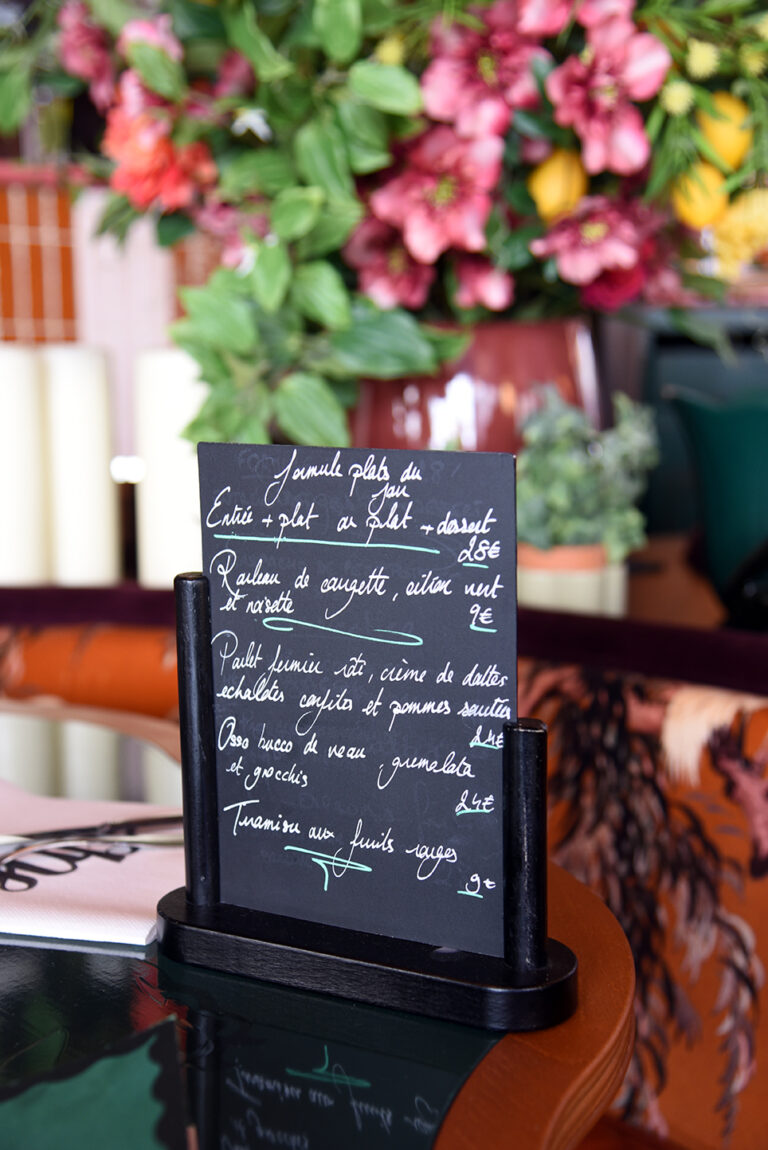 formule plats du
jour
Entrée + plat ou plat + dessert
28€
Rouleau de courgette, citron vert
et noisette
9€
Poulet fermier rôti, crème de dattes
echalotes confites et pommes sautées
24€
Osso bucco de veau, gremolata
et gnocchis
24€
Tiramisu aux fruits rouges
9€